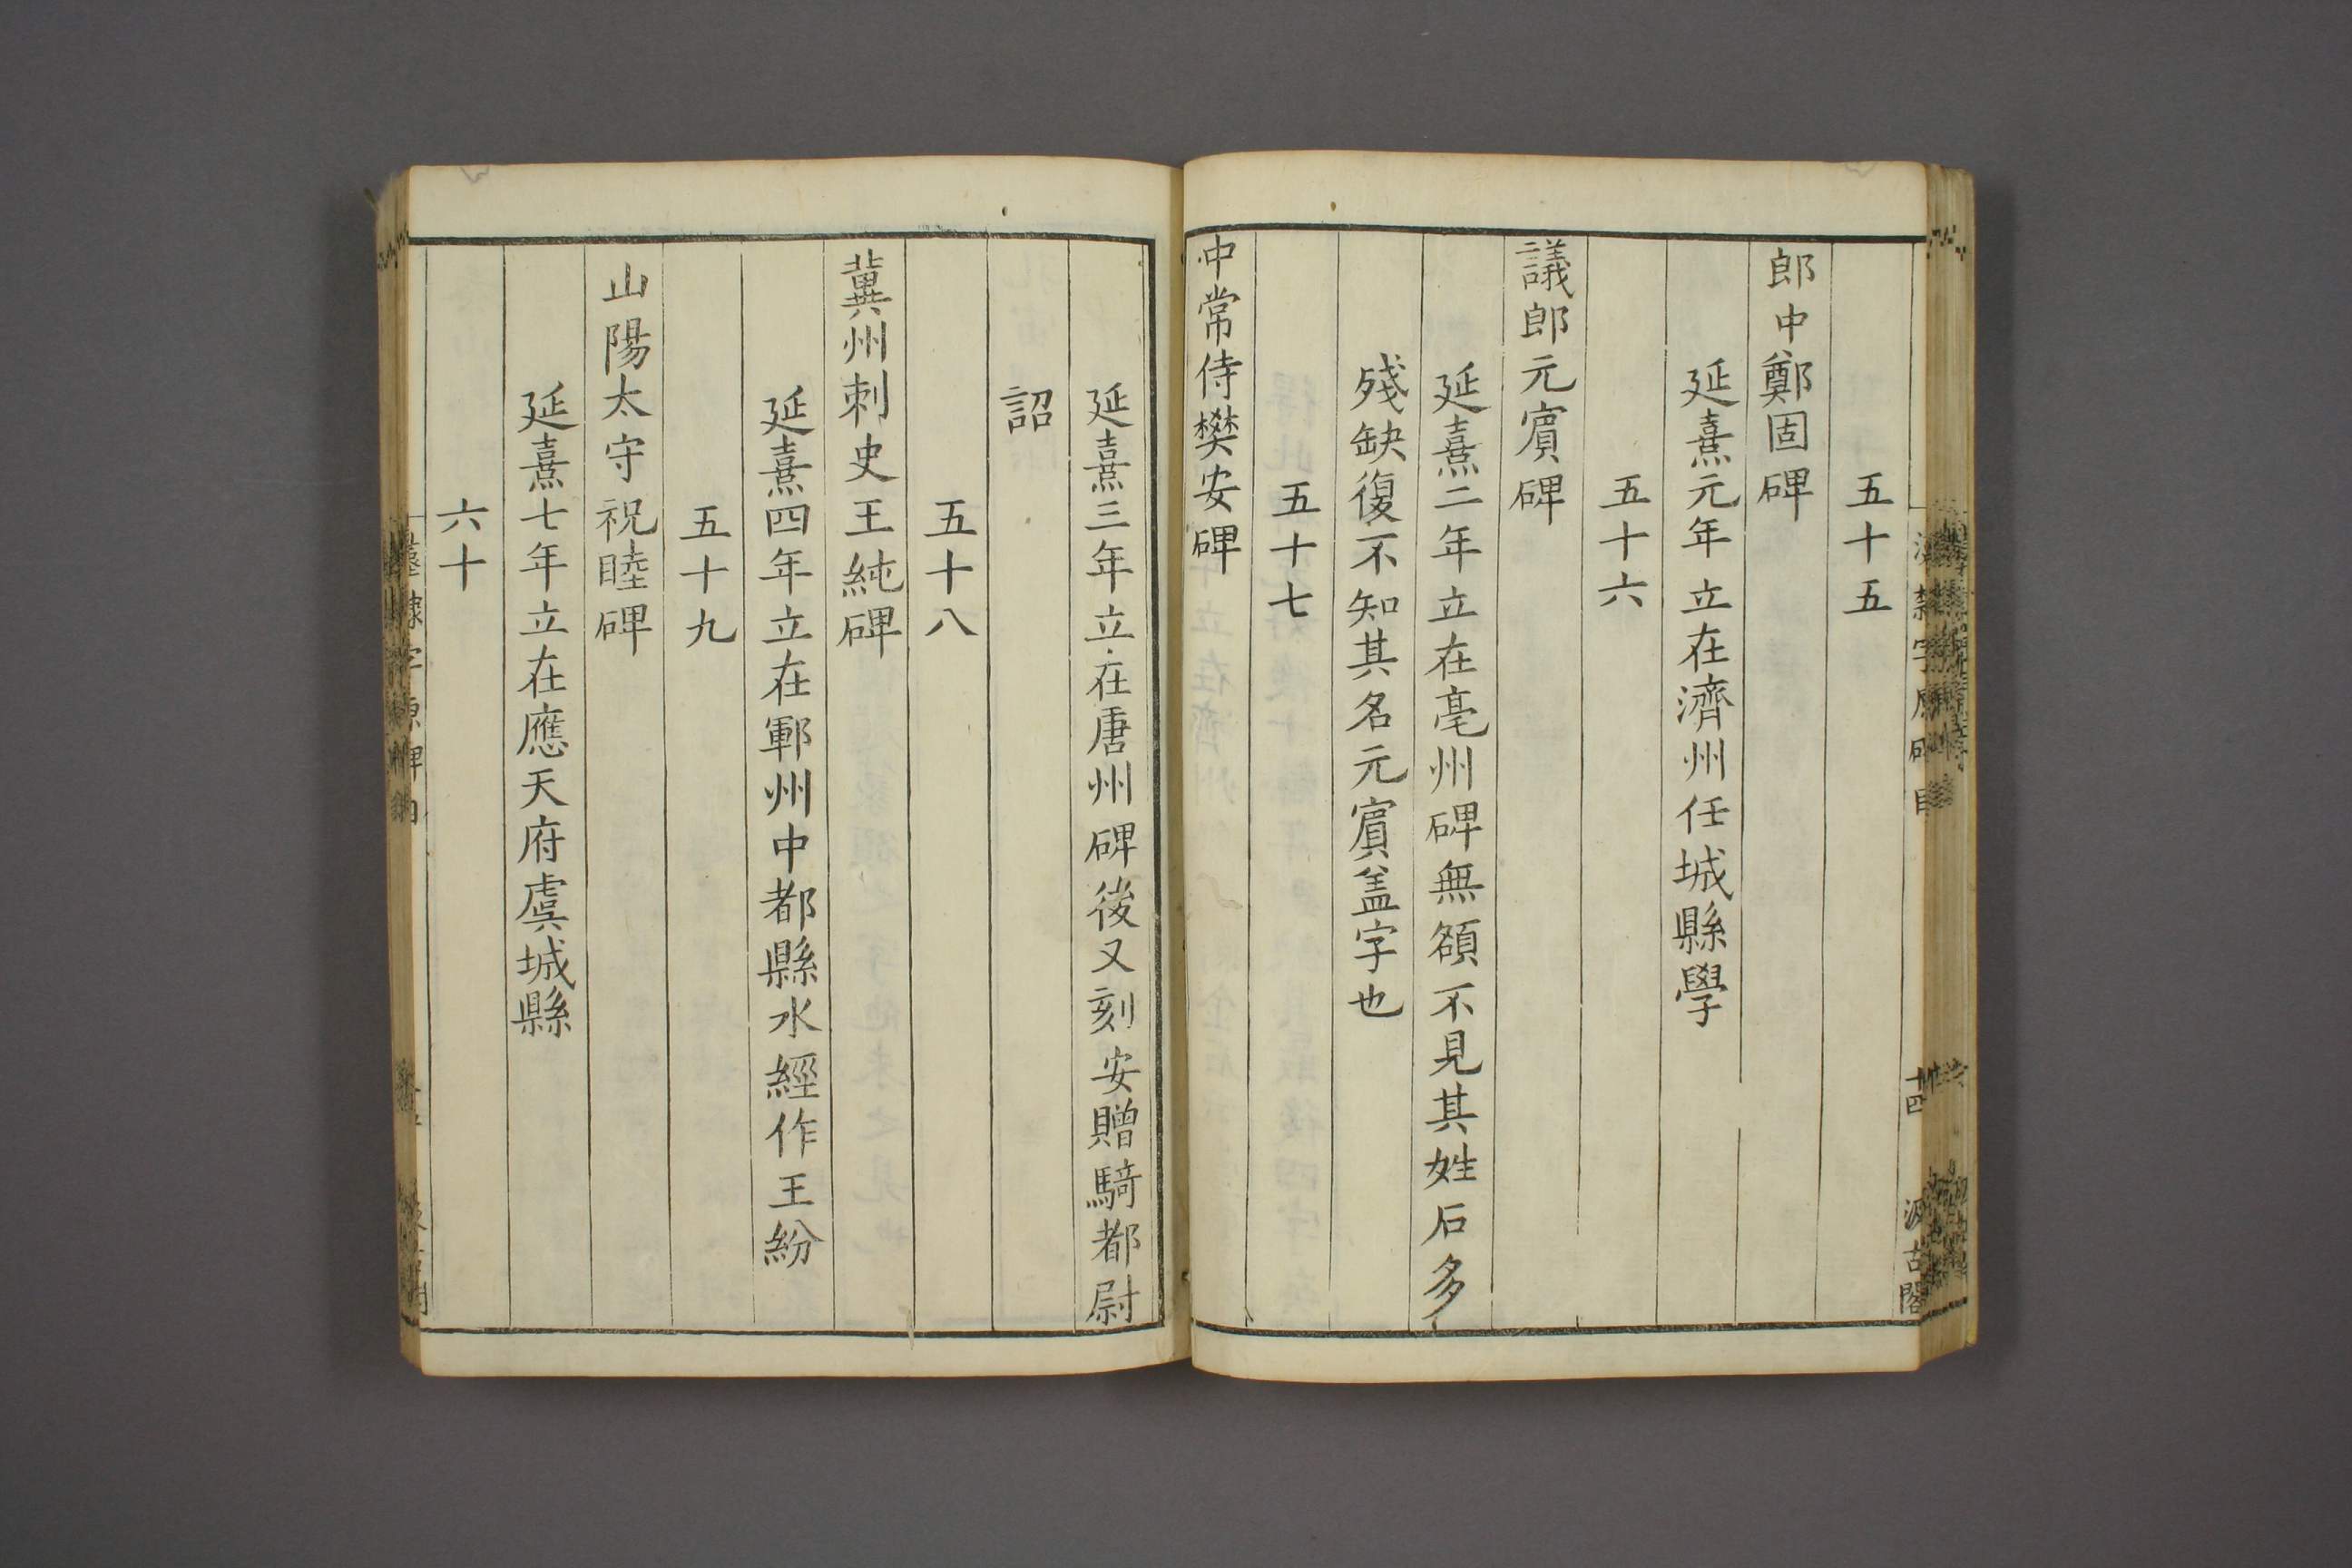 五十五
郎中鄭固碑
延熹元年立在濟州任城縣學
五十六
議郎元賔碑
延熹二年立在亳州碑無額不見其姓石多
殘缺復不知其名元賔盖字也
五十七
中常侍樊安碑
延熹三年立在唐州碑後又刻安贈騎都尉
詔
五十八
冀州刺史王純碑
延熹四年立在鄆州中都縣水經作王紛
五十九
山陽太守祝睦碑
延熹七年立在應天府虞城縣
六十
十四
汲古閣